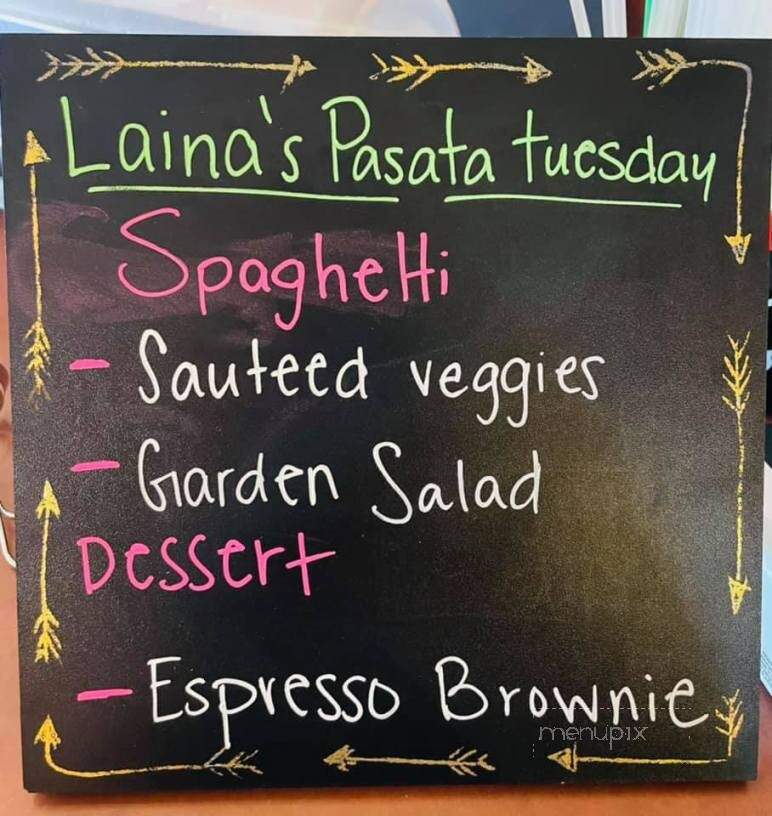 Laina's Pasata tuesday
Spaghetti
- Sauteed veggies
- Garden Salad
Dessert
- Espresso Brownie
menupix